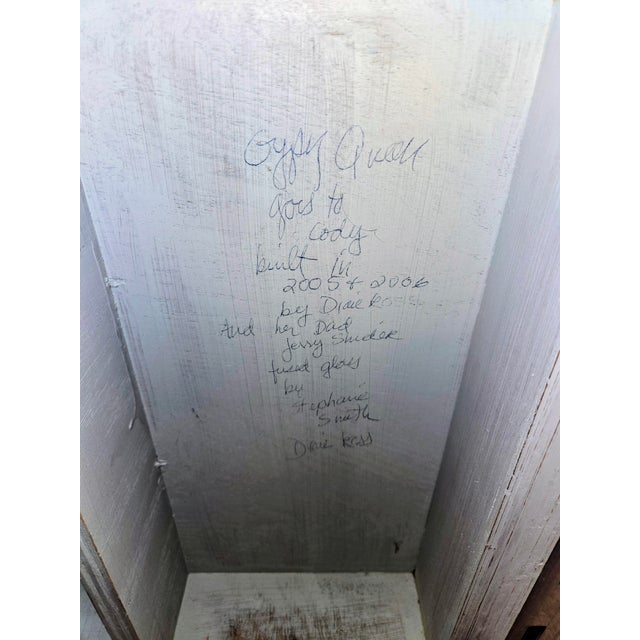 Gypsy Queen
goes to
cody
built in
2005 & 2006
by Dixie Ross
And her Dad
Jerry
fused glass
by
Stephanie
Smith
Dixie Ross